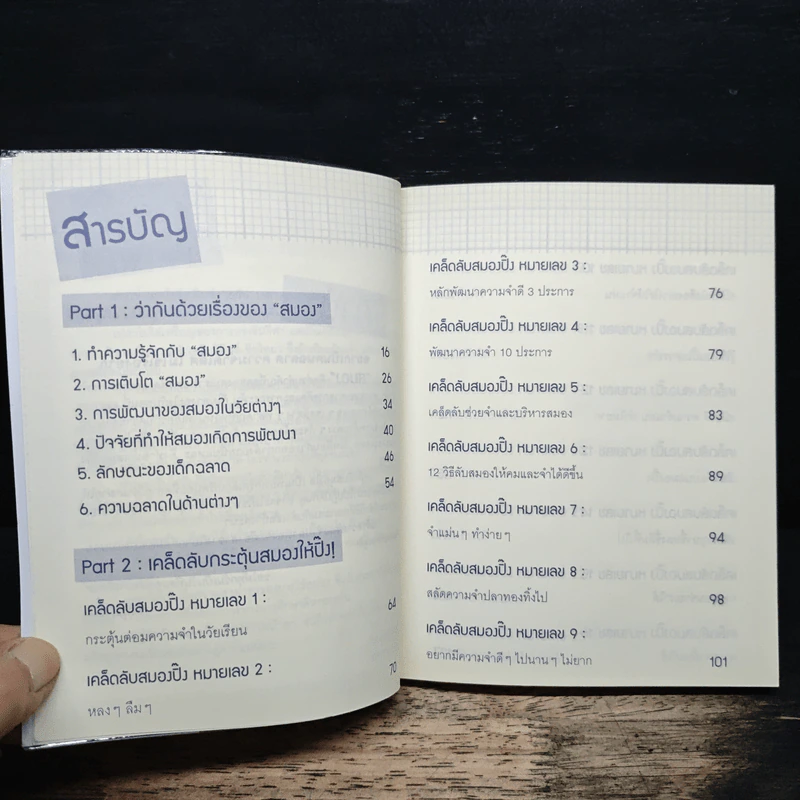 สารบัญ
Part 1 : ว่ากันด้วยเรื่องของ “สมอง”
1. ทำความรู้จักกับ “สมอง” 16
2. การเติบโต “สมอง” 26
3. การพัฒนาของสมองในวัยต่างๆ 34
4. ปัจจัยที่ทำให้สมองเกิดการพัฒนา 40
5. ลักษณะของเด็กฉลาด 46
6. ความฉลาดในด้านต่างๆ 54
Part 2 : เคล็ดลับกระตุ้นสมองให้ปิ๊ง!
เคล็ดลับสมองปิ๊ง หมายเลข 1 : 64
กระตุ้นต่อมความจำในวัยเรียน
เคล็ดลับสมองปิ๊ง หมายเลข 2 : 70
หลงๆ ลืมๆ
เคล็ดลับสมองปิ๊ง หมายเลข 3 :
หลักพัฒนาความจำดี 3 ประการ 76
เคล็ดลับสมองปิ๊ง หมายเลข 4 :
พัฒนาความจำ 10 ประการ 79
เคล็ดลับสมองปิ๊ง หมายเลข 5 :
เคล็ดลับช่วยจำและบริหารสมอง 83
เคล็ดลับสมองปิ๊ง หมายเลข 6 :
12 วิธีลับสมองให้คมและจำได้ดีขึ้น 89
เคล็ดลับสมองปิ๊ง หมายเลข 7 :
จำแม่นๆ ทำง่ายๆ 94
เคล็ดลับสมองปิ๊ง หมายเลข 8 :
สลัดความจำปลาทองทิ้งไป 98
เคล็ดลับสมองปิ๊ง หมายเลข 9 :
อยากมีความจำดีๆ ไปนานๆ ไม่ยาก 101